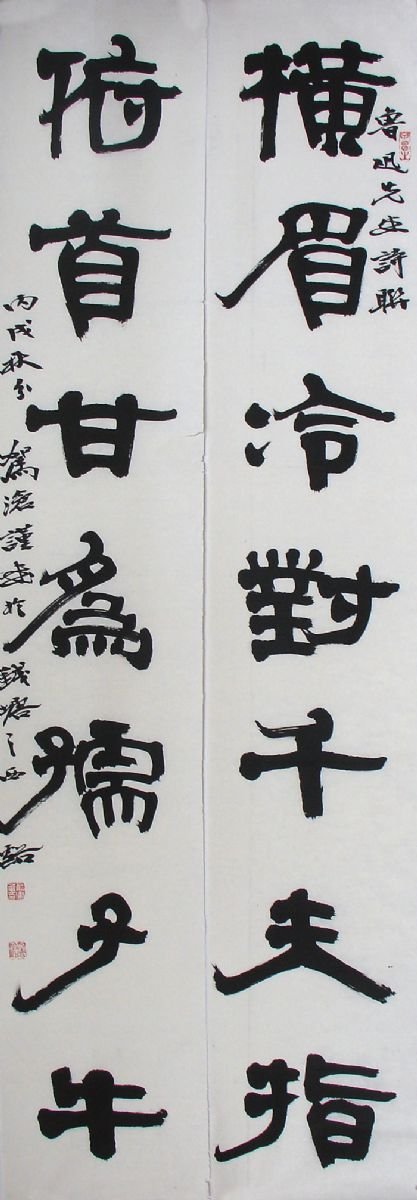 魯迅先生詩聯
橫眉冷對千夫指
俯首甘為孺子牛
丙戌秋分 滄謹書於錢塘之西谿